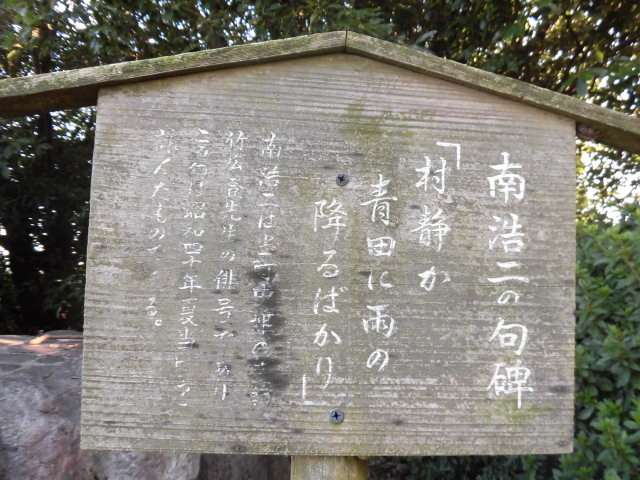 南浩二の句碑
「村静か
青田に雨の
降るばかり」
南浩二は当町出
竹公富先生の俳号であり
この句は昭和四十年夏当
詠んだもので る。